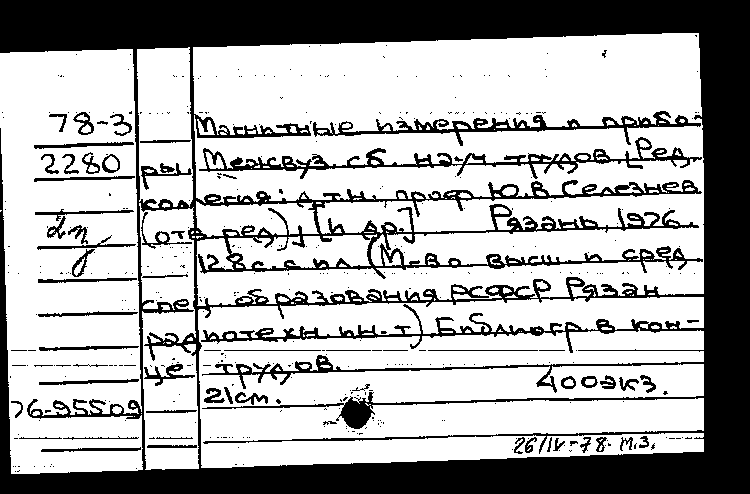 78-3 Магнитные измерения и прибо-
2280 ры. Межвуз. сб. науч. трудов. [Ред.
коллегия: д.т.н., проф. Ю.В. Селезнев
(отв. ред.) и др.]. Рязань, 1976.
128 с. с ил. (М-во высш. и сред.
спец. образования РСФСР. Рязан.
радиотехн. ин-т). Библиогр. в кон-
це трудов.
76-95509 21 см. 400 экз.
26/IV-78 М.З.